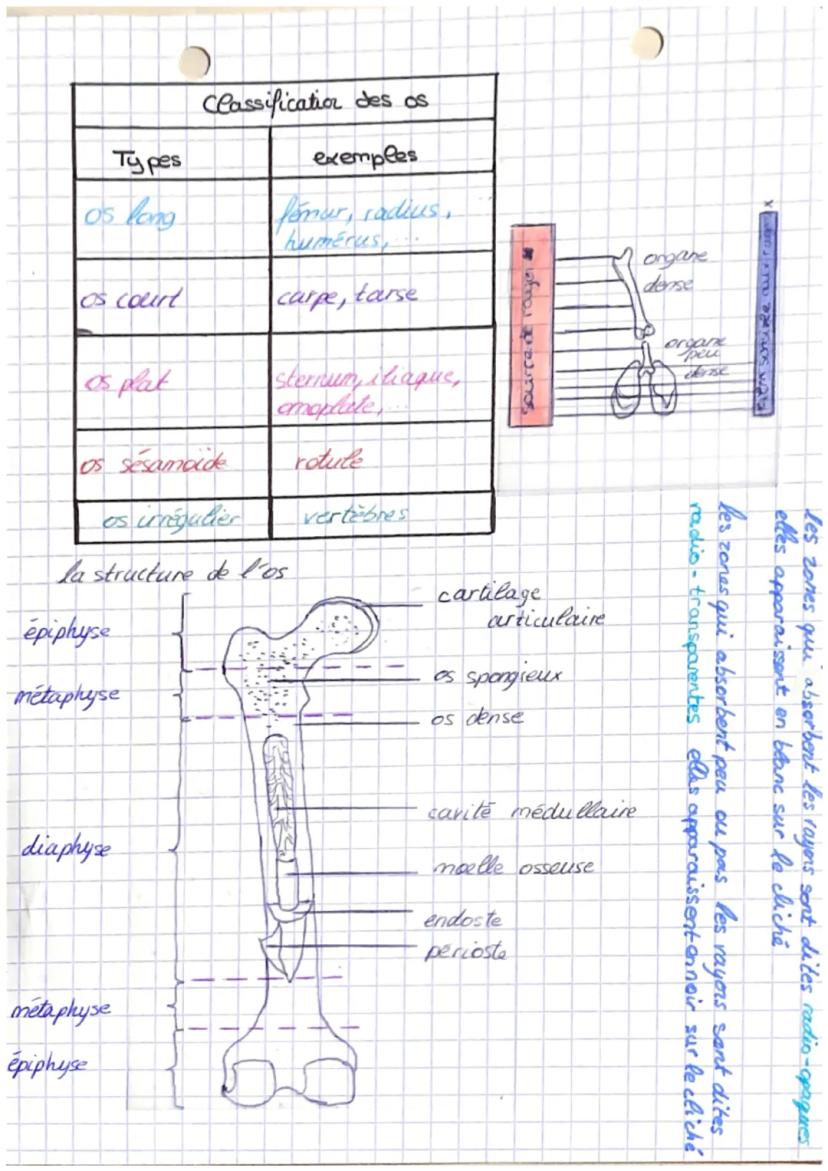 Classification des os
Types
exemples
os long
fémur, radius,
humérus, ...
os court
carpe, tarse
os plat
sternum, iliaque,
omoplate, ...
os sésamoïde
rotule
os irrégulier
vertèbres
source de rayon x
organe
dense
organe
peu
dense
x
les zones qui absorbent les rayons sont dites radio-opaques
elles apparaissent en blanc sur le cliché
les zones qui absorbent peu ou pas les rayons sont dites
radio-transparentes elles apparaissent en noir sur le cliché
la structure de l'os
épiphyse
métaphyse
diaphyse
métaphyse
épiphyse
cartilage
articulaire
os spongieux
os dense
cavité médullaire
moelle osseuse
endoste
périoste